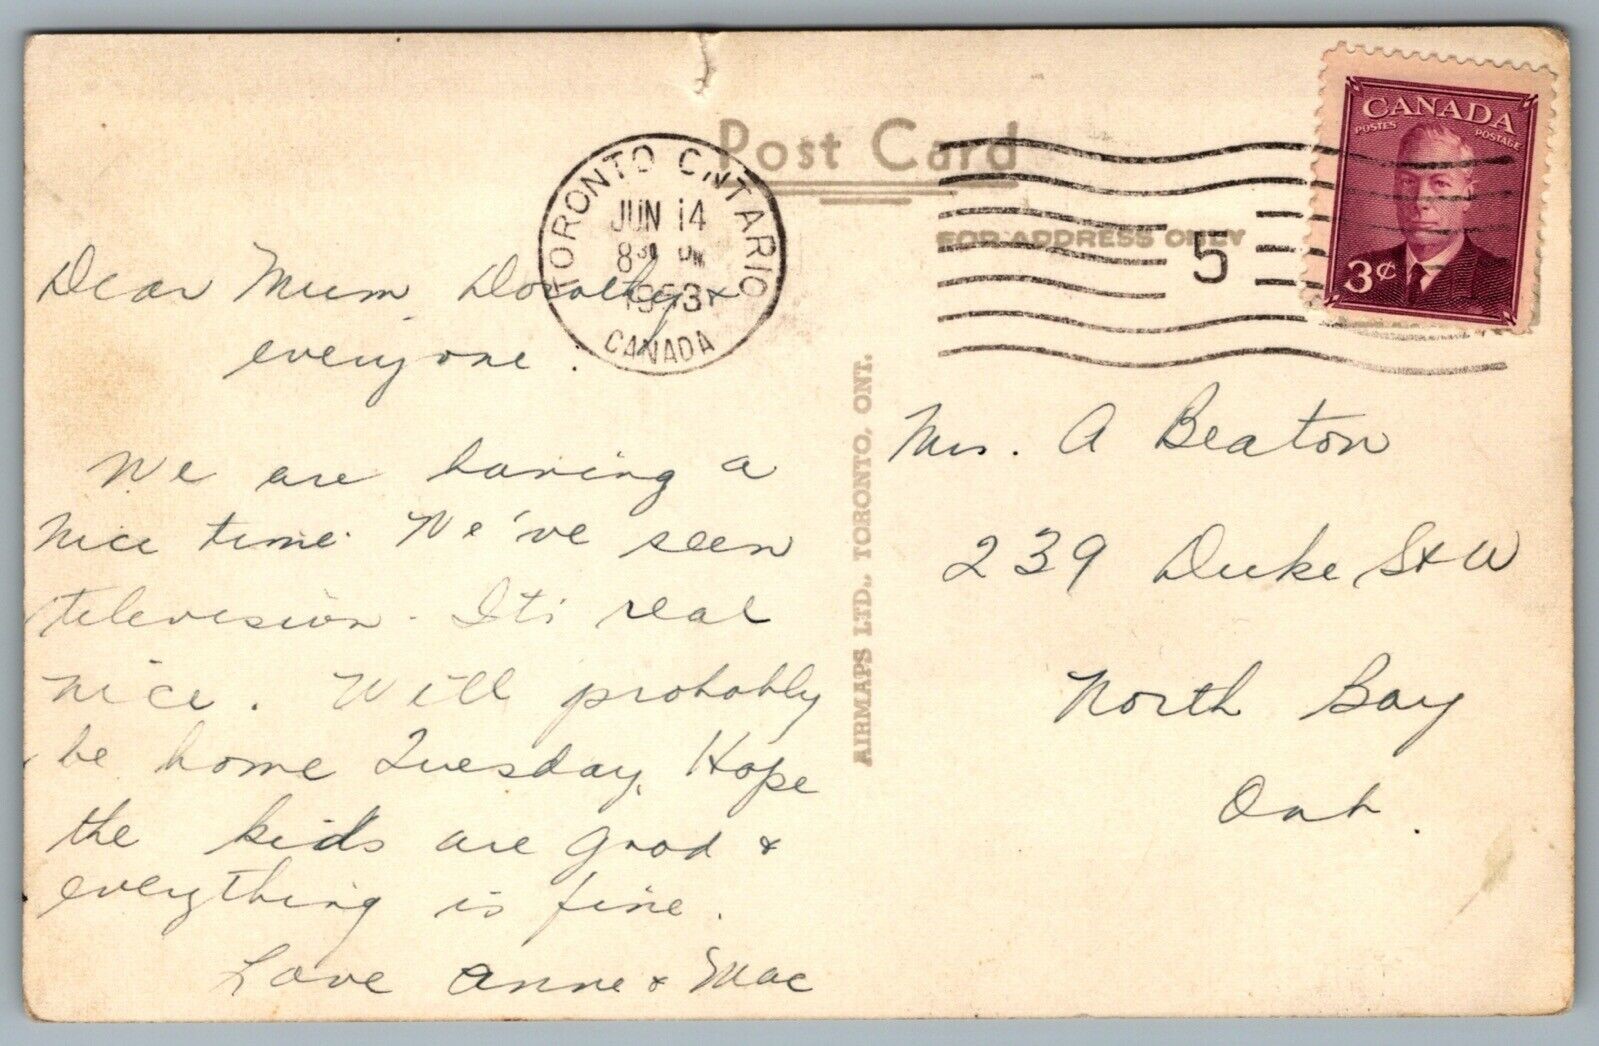 Post Card
FOR ADDRESS ONLY
TORONTO ONTARIO
JUN 14
8 30 PM
1953
CANADA
5
CANADA
POSTES POSTAGE
3¢
Dear Mum, Dorothy &
everyone.
We are having a
nice time. We've seen
television. It's real
nice. Will probably
be home Tuesday. Hope
the kids are good &
everything is fine.
Love Anne & Mac
AIRMAPS LTD., TORONTO, ONT.
Mrs. A Beaton
239 Duke St W
North Bay
Ont.